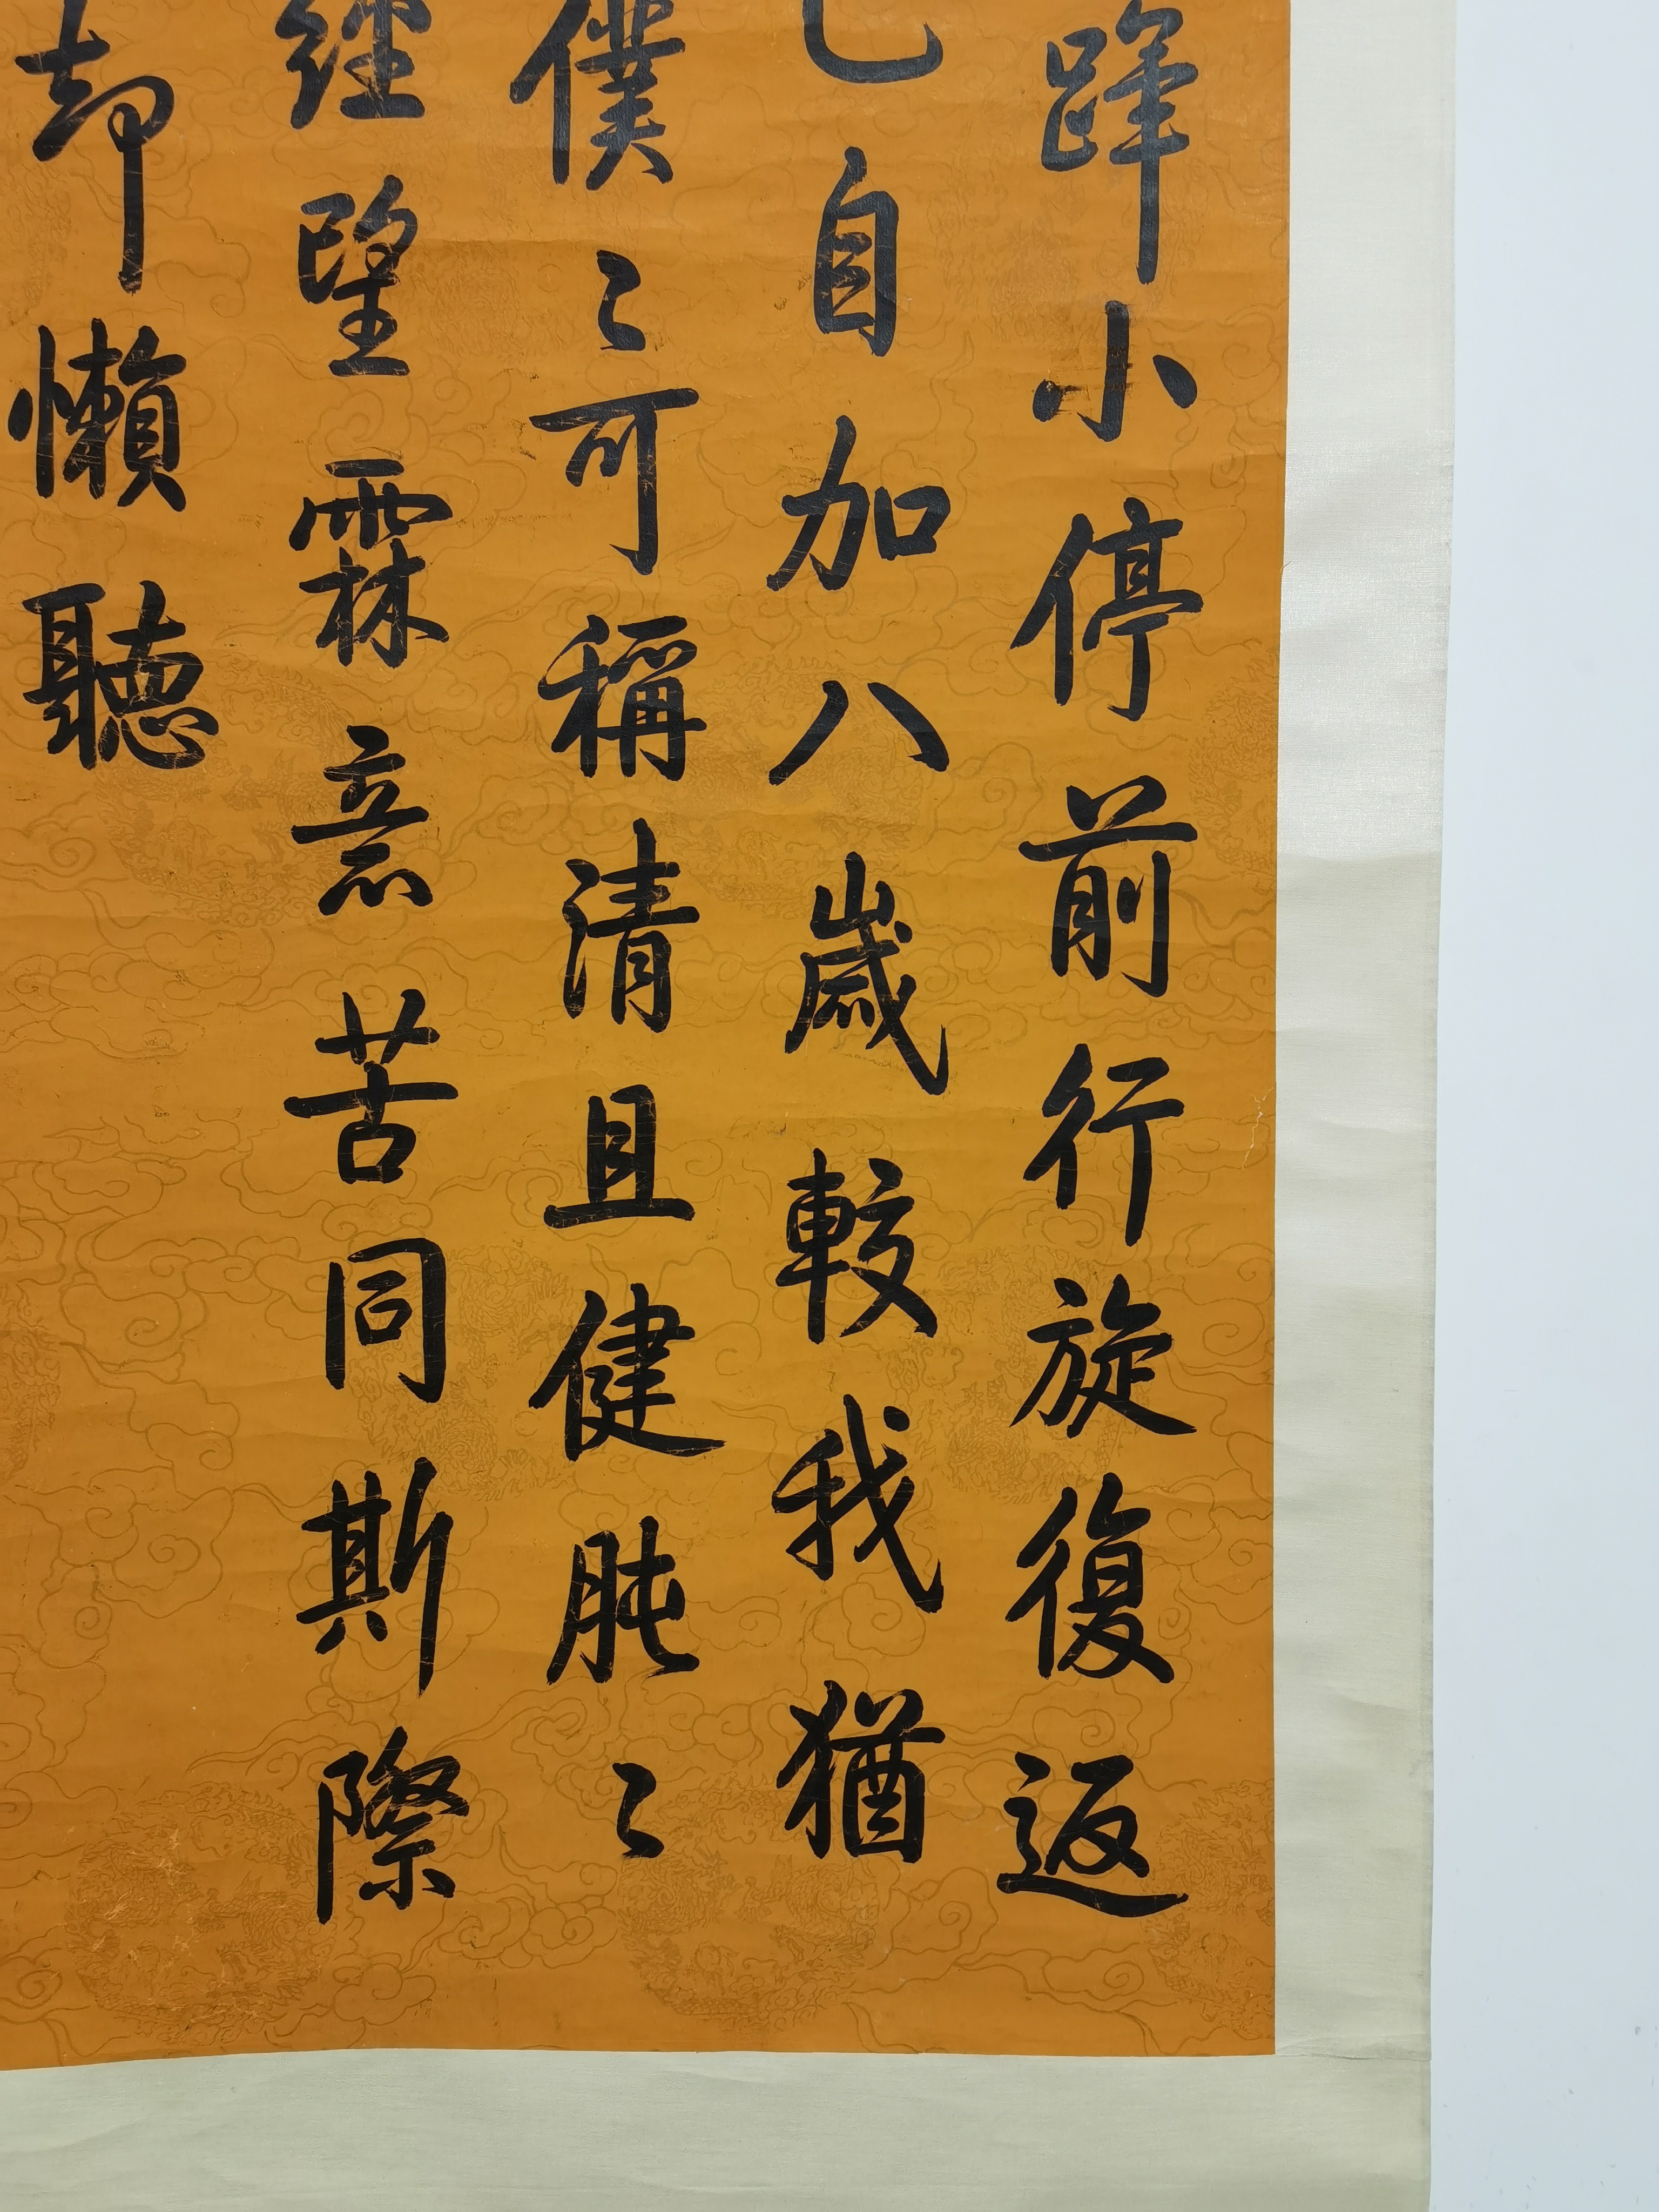 蹕小停前行旋復返
已自加八歲較我猶
僕〻可稱清且健肫〻
經望霖意苦同斯際
却懶聽